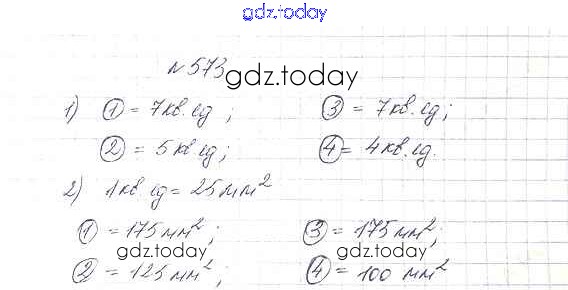 gdz.today
№573
gdz.today
1) ① = 7кв.ед; ③ = 7кв.ед;
② = 5кв.ед; ④ = 4кв.ед.
2) 1кв ед = 25мм²
① = 175мм²; ③ = 175мм²;
gdz.today gdz.today
② = 125мм²; ④ = 100 мм²